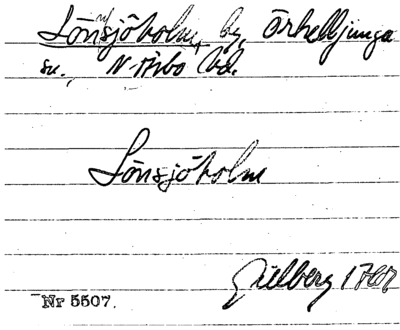 Lönsjöholm, by, Örkelljunga
sn., N. Åsbo hd.
Lönsjöholm
Gillberg 1702
Nr 5507.